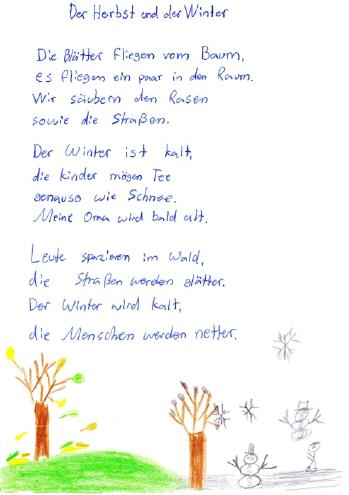 Der Herbst und der Winter
Die Blätter fliegen vom Baum,
es fliegen ein paar in den Raum.
Wir säubern den Rasen
sowie die Straßen.
Der Winter ist kalt,
die Kinder mögen Tee
genauso wie Schnee.
Meine Oma wird bald alt.
Leute spazieren im Wald,
die Straßen werden glätter.
Der Winter wird kalt,
die Menschen werden netter.